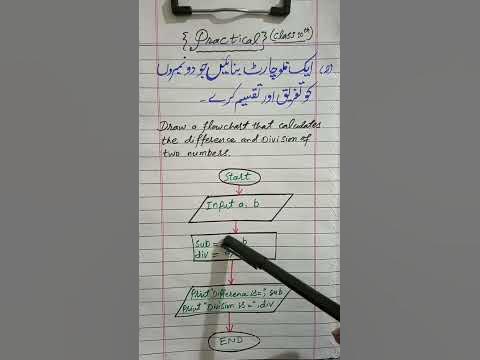 {Practical} (class 10th)
ایک فلو چارٹ بنائیں جو دو نمبروں
کو تفریق اور تقسیم کرے۔
Draw a flowchart that calculates
the difference and Division of
two numbers.
Start
Input a, b
sub = b
div =
Print "Differenc is=", sub
Print "Division is=", div
END